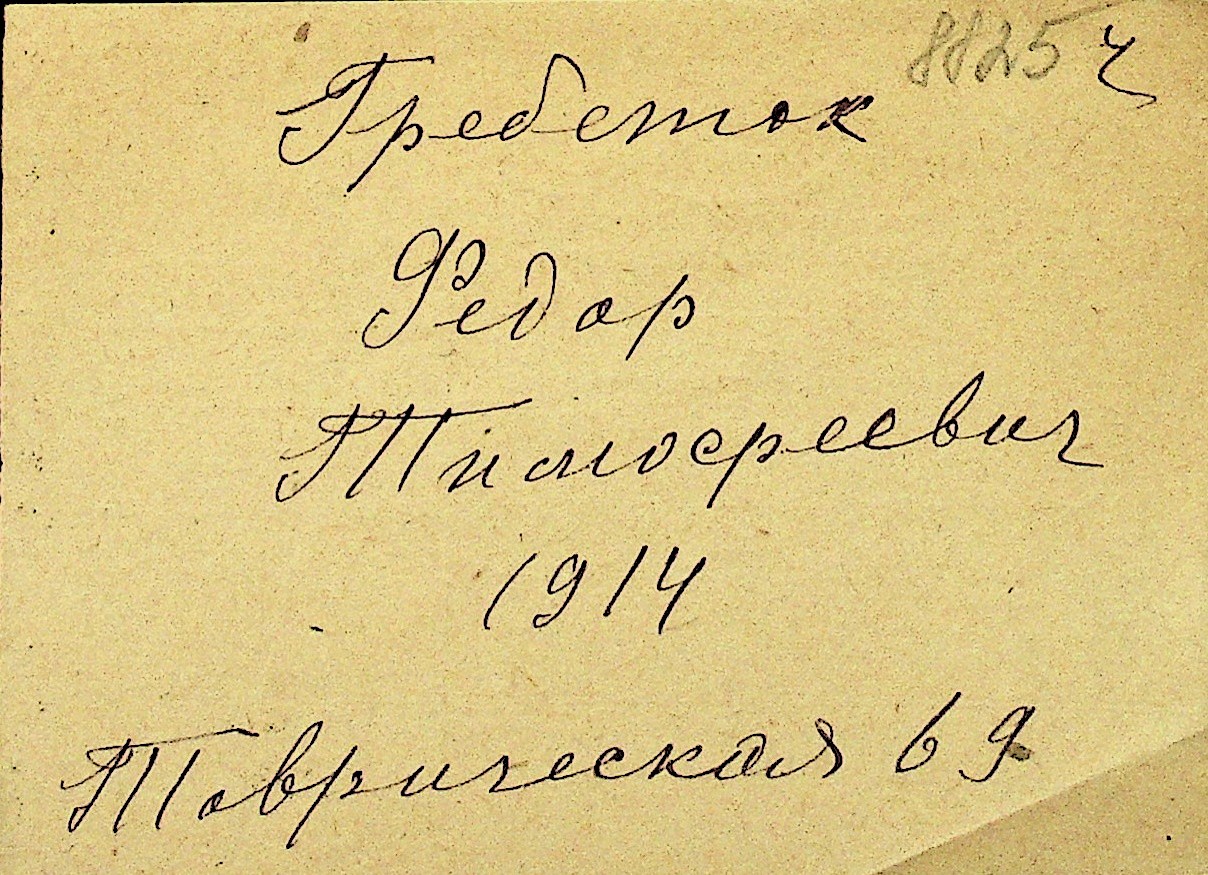 88254
Гребеток
Федор
Тимофеевич
1914
Таврическая 69